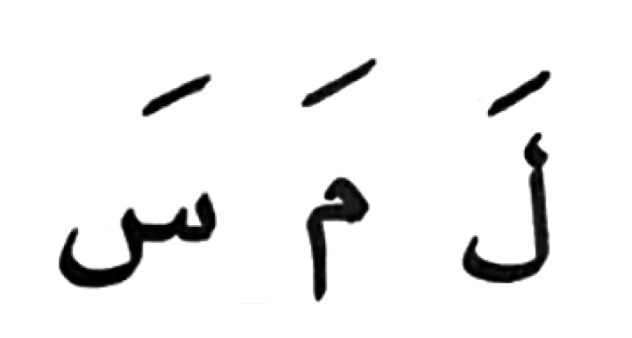 لَ مَ سَ